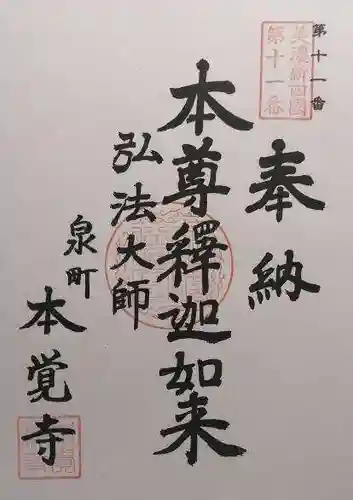 第十一番
美濃新四國
第十一番
奉納
本尊釋迦如来
弘法大師
泉町
本覚寺